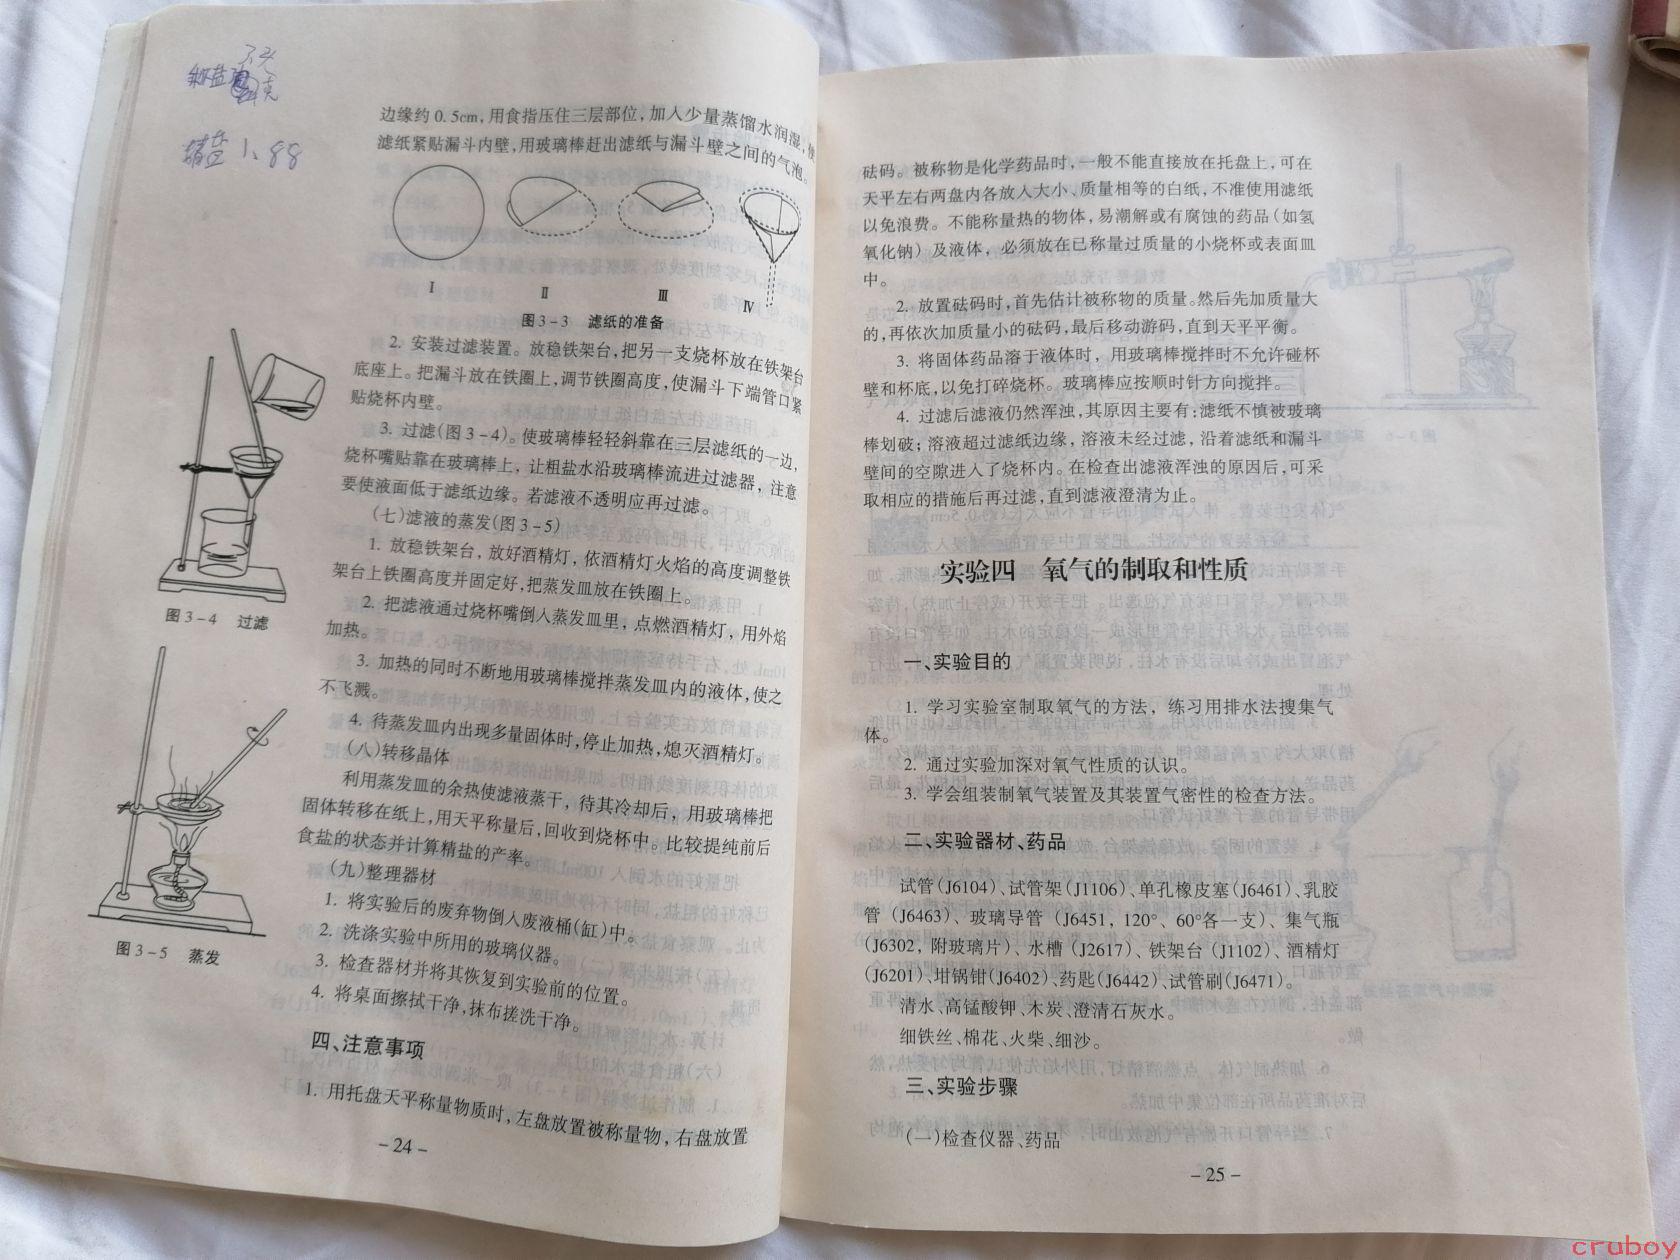 精盐 1、88
边缘约0.5cm,用食指压住三层部位,加入少量蒸馏水润湿,使
滤纸紧贴漏斗内壁,用玻璃棒赶出滤纸与漏斗壁之间的气泡。
Ⅰ Ⅱ Ⅲ Ⅳ
图3-3 滤纸的准备
2. 安装过滤装置。放稳铁架台,把另一支烧杯放在铁架台
底座上。把漏斗放在铁圈上,调节铁圈高度,使漏斗下端管口紧
贴烧杯内壁。
3. 过滤(图3-4)。使玻璃棒轻轻斜靠在三层滤纸的一边,
烧杯嘴贴靠在玻璃棒上，让粗盐水沿玻璃棒流进过滤器，注意
要使液面低于滤纸边缘。若滤液不透明应再过滤。
(七)滤液的蒸发(图3-5)
1. 放稳铁架台，放好酒精灯，依酒精灯火焰的高度调整铁
架台上铁圈高度并固定好,把蒸发皿放在铁圈上。
2. 把滤液通过烧杯嘴倒入蒸发皿里，点燃酒精灯，用外焰
加热。
3. 加热的同时不断地用玻璃棒搅拌蒸发皿内的液体,使之
不飞溅。
4. 待蒸发皿内出现多量固体时,停止加热,熄灭酒精灯。
(八)转移晶体
利用蒸发皿的余热使滤液蒸干，待其冷却后，用玻璃棒把
固体转移在纸上,用天平称量后,回收到烧杯中。比较提纯前后
食盐的状态并计算精盐的产率。
(九)整理器材
1. 将实验后的废弃物倒入废液桶(缸)中。
2. 洗涤实验中所用的玻璃仪器。
3. 检查器材并将其恢复到实验前的位置。
4. 将桌面擦拭干净,抹布搓洗干净。
图3-4 过滤
图3-5 蒸发
四、注意事项
1. 用托盘天平称量物质时,左盘放置被称量物,右盘放置
-24-
砝码。被称物是化学药品时,一般不能直接放在托盘上,可在
天平左右两盘内各放入大小、质量相等的白纸,不准使用滤纸
以免浪费。不能称量热的物体,易潮解或有腐蚀的药品(如氢
氧化钠)及液体，必须放在已称量过质量的小烧杯或表面皿
中。
2. 放置砝码时,首先估计被称物的质量。然后先加质量大
的,再依次加质量小的砝码,最后移动游码,直到天平平衡。
3. 将固体药品溶于液体时，用玻璃棒搅拌时不允许碰杯
壁和杯底,以免打碎烧杯。玻璃棒应按顺时针方向搅拌。
4. 过滤后滤液仍然浑浊,其原因主要有:滤纸不慎被玻璃
棒划破；溶液超过滤纸边缘，溶液未经过滤，沿着滤纸和漏斗
壁间的空隙进入了烧杯内。在检查出滤液浑浊的原因后,可采
取相应的措施后再过滤,直到滤液澄清为止。
实验四 氧气的制取和性质
一、实验目的
1. 学习实验室制取氧气的方法，练习用排水法搜集气
体。
2. 通过实验加深对氧气性质的认识。
3. 学会组装制氧气装置及其装置气密性的检查方法。
二、实验器材、药品
试管(J6104)、试管架(J1106)、单孔橡皮塞(J6461)、乳胶
管(J6463)、玻璃导管(J6451, 120°、60°各一支)、集气瓶
(J6302, 附玻璃片)、水槽(J2617)、铁架台(J1102)、酒精灯
(J6201)、坩锅钳(J6402)、药匙(J6442)、试管刷(J6471)。
清水、高锰酸钾、木炭、澄清石灰水。
细铁丝、棉花、火柴、细沙。
三、实验步骤
(一)检查仪器、药品
-25-
cruboy